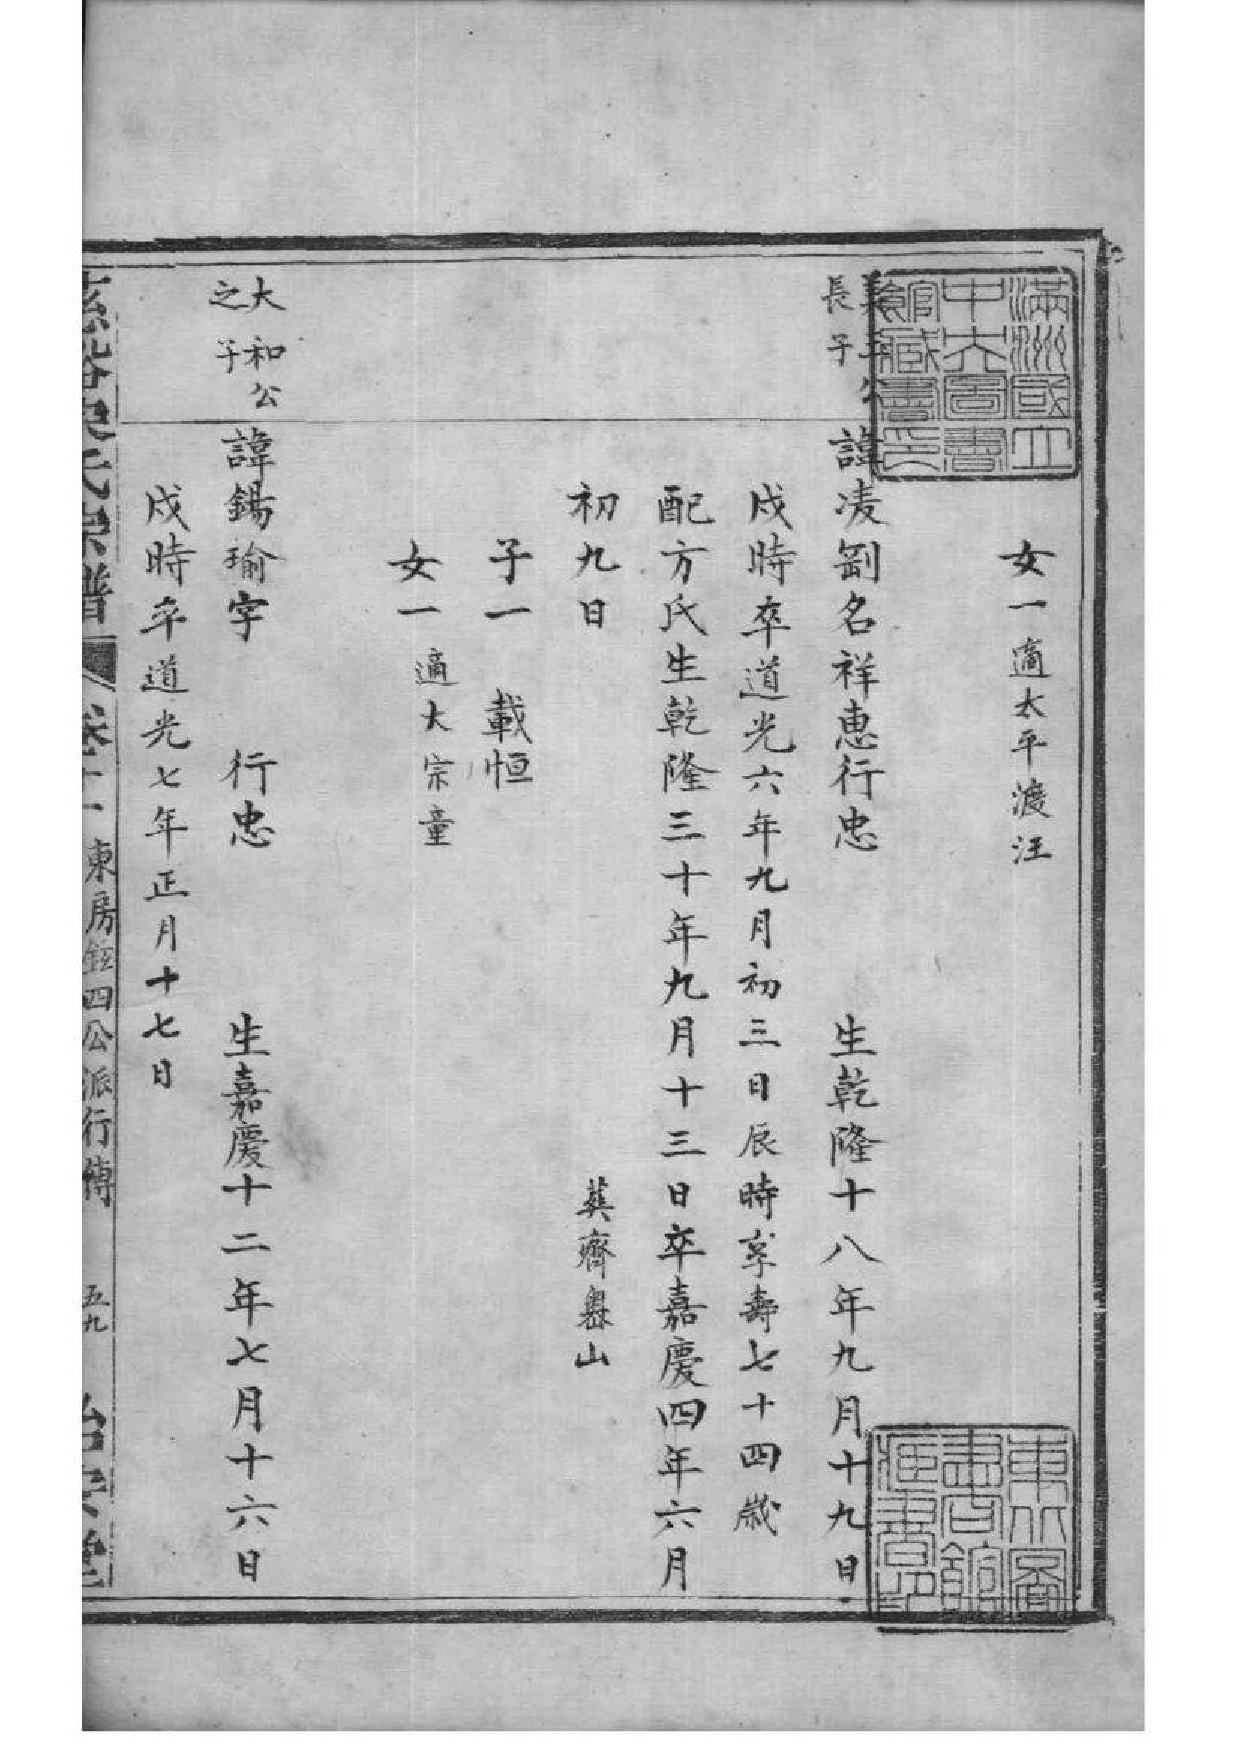 滿洲國立
中央圖書
館藏書印
女一適太平渡汪
長子
諱凌劄名祥惠行忠　生乾隆十八年九月十九日
戌時卒道光六年九月初三日辰時享壽七十四歲
配方氏生乾隆三十年九月十三日卒嘉慶四年六月
初九日　葬齊嶴山
子一　載恒
女一　適大宗童
大和公
之子
諱錫瑜字　行忠　生嘉慶十二年七月十六日
戌時卒道光七年正月十七日
東北圖
書館
藏書印
氏宗譜　卷十一　東房鉉四公派行傳　五九